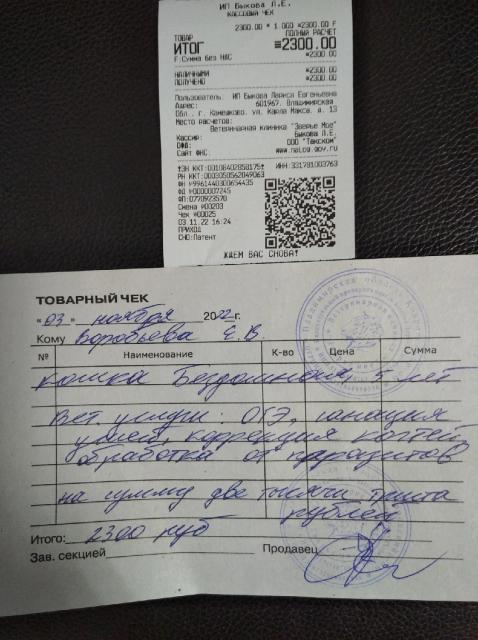 ИП Быкова Л.Е.
КАССОВЫЙ ЧЕК
2300.00 * 1.000 =2300.00 F
ТОВАР ПОЛНЫЙ РАСЧЕТ
ИТОГ =2300.00
F:Сумма без НДС =2300.00
НАЛИЧНЫМИ =2300.00
ПОЛУЧЕНО =2300.00
Пользователь: ИП Быкова Лариса Евгеньевна
Адрес: 601967, Владимирская
Обл., г. Камешково, ул. Карла Макса, д. 13
Место расчетов:
Ветеринарная клиника "Зверье Мое"
Кассир: Быкова Л.Е.
ОФД: ООО "Такском"
Сайт ФНС: www.nalog.gov.ru
ЗН ККТ:00108402858175 ИНН:331781003763
РН ККТ:0003050562049063
ФН №9961440300654435
ФД №0000007245
ФП:0770923570
Смена №00203
Чек №00025
03.11.22 16:24
ПРИХОД
СНО:Патент
ЖДЕМ ВАС СНОВА!
ТОВАРНЫЙ ЧЕК
"03" ноября 2022г.
Кому Воробьева Е.В.
№ Наименование К-во Цена Сумма
кошка Бездомная, 5 лет
Вет. услуги: ОГЭ, санация
ушей, коррекция когтей,
обработка от паразитов
на сумму две тысячи триста
рублей
Итого: 2300 руб
Зав. секцией Продавец